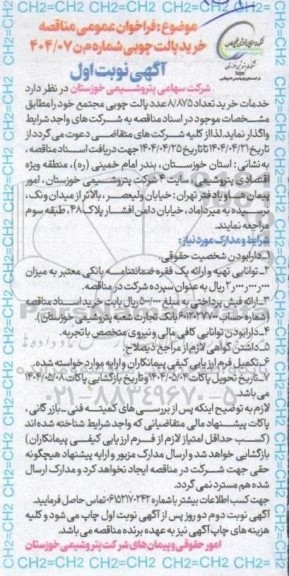 موضوع: فراخوان عمومی مناقصه
خرید پالت چوبی شماره م ن ۴۰۴/۰۷
آگهی نوبت اول
شرکت سهامی پتروشیمی خوزستان در نظر دارد
خدمات خرید تعداد ۸/۸۷۵ عدد پالت چوبی مجتمع خود را مطابق
مشخصات موجود در اسناد مناقصه به شرکت های واجد شرایط
واگذار نماید. لذا از کلیه شرکت های متقاضی دعوت می گردد از
تاریخ ۱۴۰۴/۰۴/۲۱ تا تاریخ ۱۴۰۴/۰۴/۲۵ جهت دریافت اسناد مناقصه،
به نشانی: استان خوزستان، بندر امام خمینی (ره)، منطقه ویژه
اقتصادی پتروشیمی، سایت ۴ شرکت پتروشیمی خوزستان، امور
پیمان ها و یا دفتر تهران: خیابان ولیعصر، بالاتر از میدان ونک،
نرسیده به میرداماد، خیابان دامن افشار، پلاک ۴۸، طبقه سوم
مراجعه نمایند.
شرایط و مدارک مورد نیاز:
۱- دارا بودن شخصیت حقوقی.
۲- توانایی تهیه و ارائه یک فقره ضمانتنامه بانکی معتبر به میزان
ریال به عنوان سپرده شرکت در مناقصه.
۳- ارائه فیش پرداختی به مبلغ ریال بابت خرید اسناد مناقصه
(شماره حساب بانک تجارت شعبه پتروشیمی خوزستان).
۴- دارا بودن توانایی کافی مالی و نیروی متخصص با تجربه.
۵- داشتن گواهی لازم از مراجع ذیصلاح.
۶- تکمیل فرم ارزیابی کیفی پیمانکاران و ارایه موارد خواسته شده.
۷- تاریخ تحویل پاکات ۱۴۰۴/۰۵/۰۴ و تاریخ بازگشایی پاکات ۱۴۰۴/۰۵/۰۸
می باشد.
لازم به توضیح اینکه پس از بررسی های کمیته فنی - بازرگانی،
پاکات پیشنهاد مالی متقاضیانی که واجد شرایط شناخته شده اند
(کسب حداقل امتیاز لازم از فرم ارزیابی کیفی پیمانکاران)
بازگشایی خواهد شد و ارسال مدارک مزبور و ارایه پیشنهاد هیچگونه
حقی جهت شرکت در مناقصه ایجاد نخواهد کرد و مدارک ارسال
شده هم مسترد نمی گردد.
جهت کسب اطلاعات بیشتر با شماره تماس حاصل فرمایید.
آگهی نوبت دوم دو روز پس از آگهی نوبت اول چاپ می شود و کلیه
هزینه های چاپ آگهی نیز به عهده برنده مناقصه می باشد.
امور حقوقی و پیمان های شرکت پتروشیمی خوزستان
۰۲۱-۸۸۳۴۹۶۷۰-۵